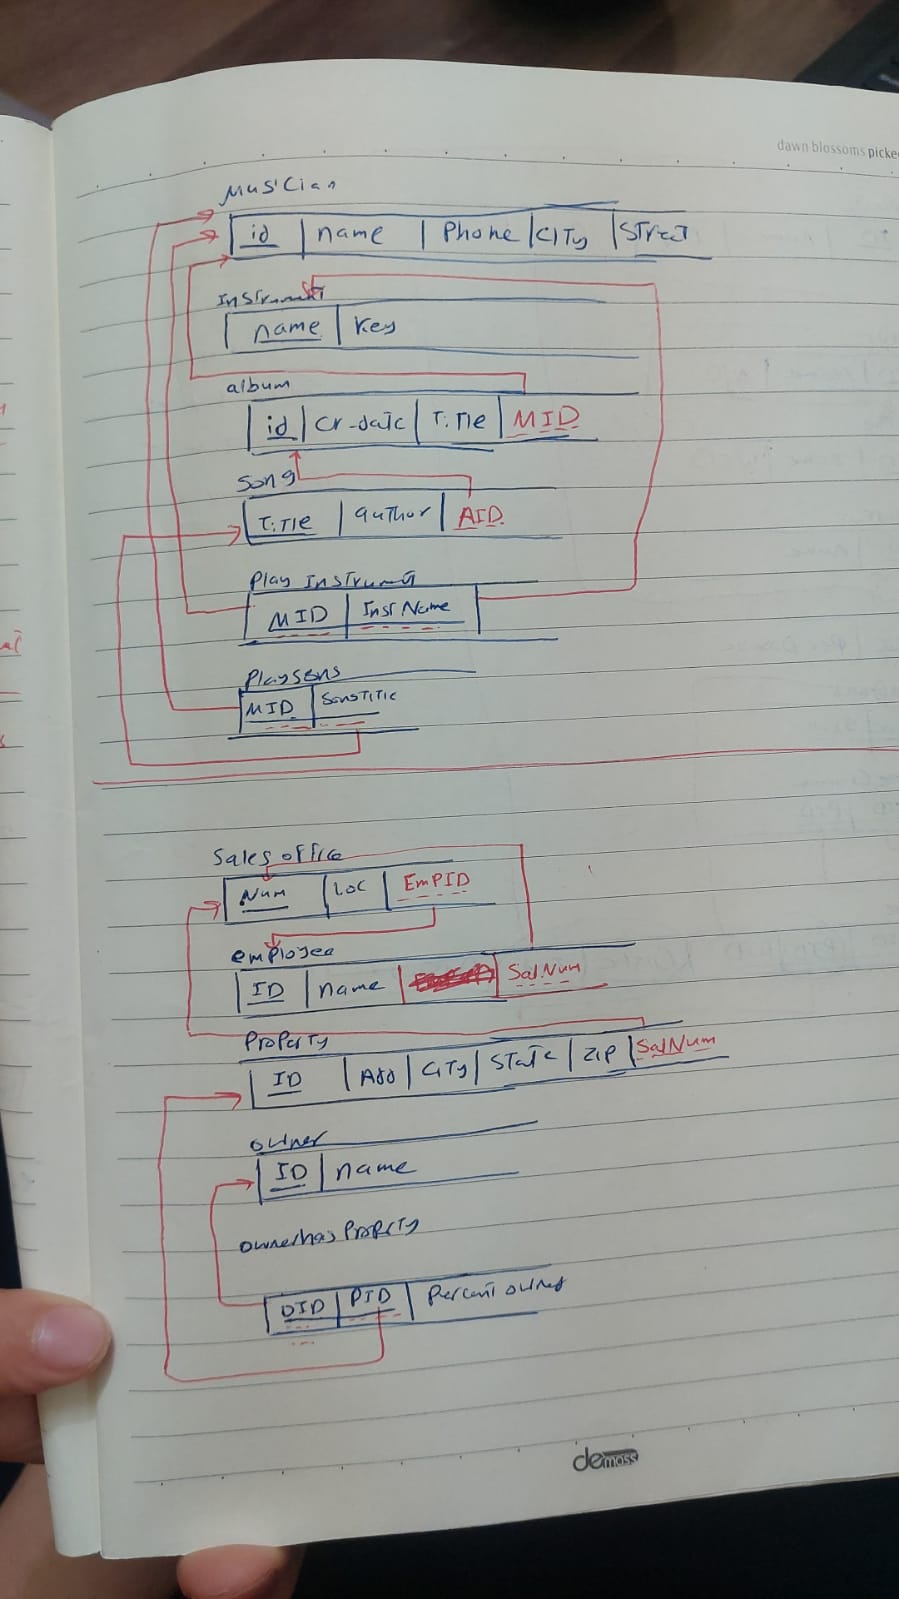 dawn blossoms picke
Musician
id name Phone City Street
Instrument
name key
album
id cr-date Title MID
Song
Title author AID
Play Instrument
MID Inst Name
PlaySong
MID SongTitle
Sales office
Num Loc EmPID
employee
ID name Sal.Num
Property
ID Add City State Zip SalNum
owner
ID name
owner has Property
OID PID Percent owned
demoss